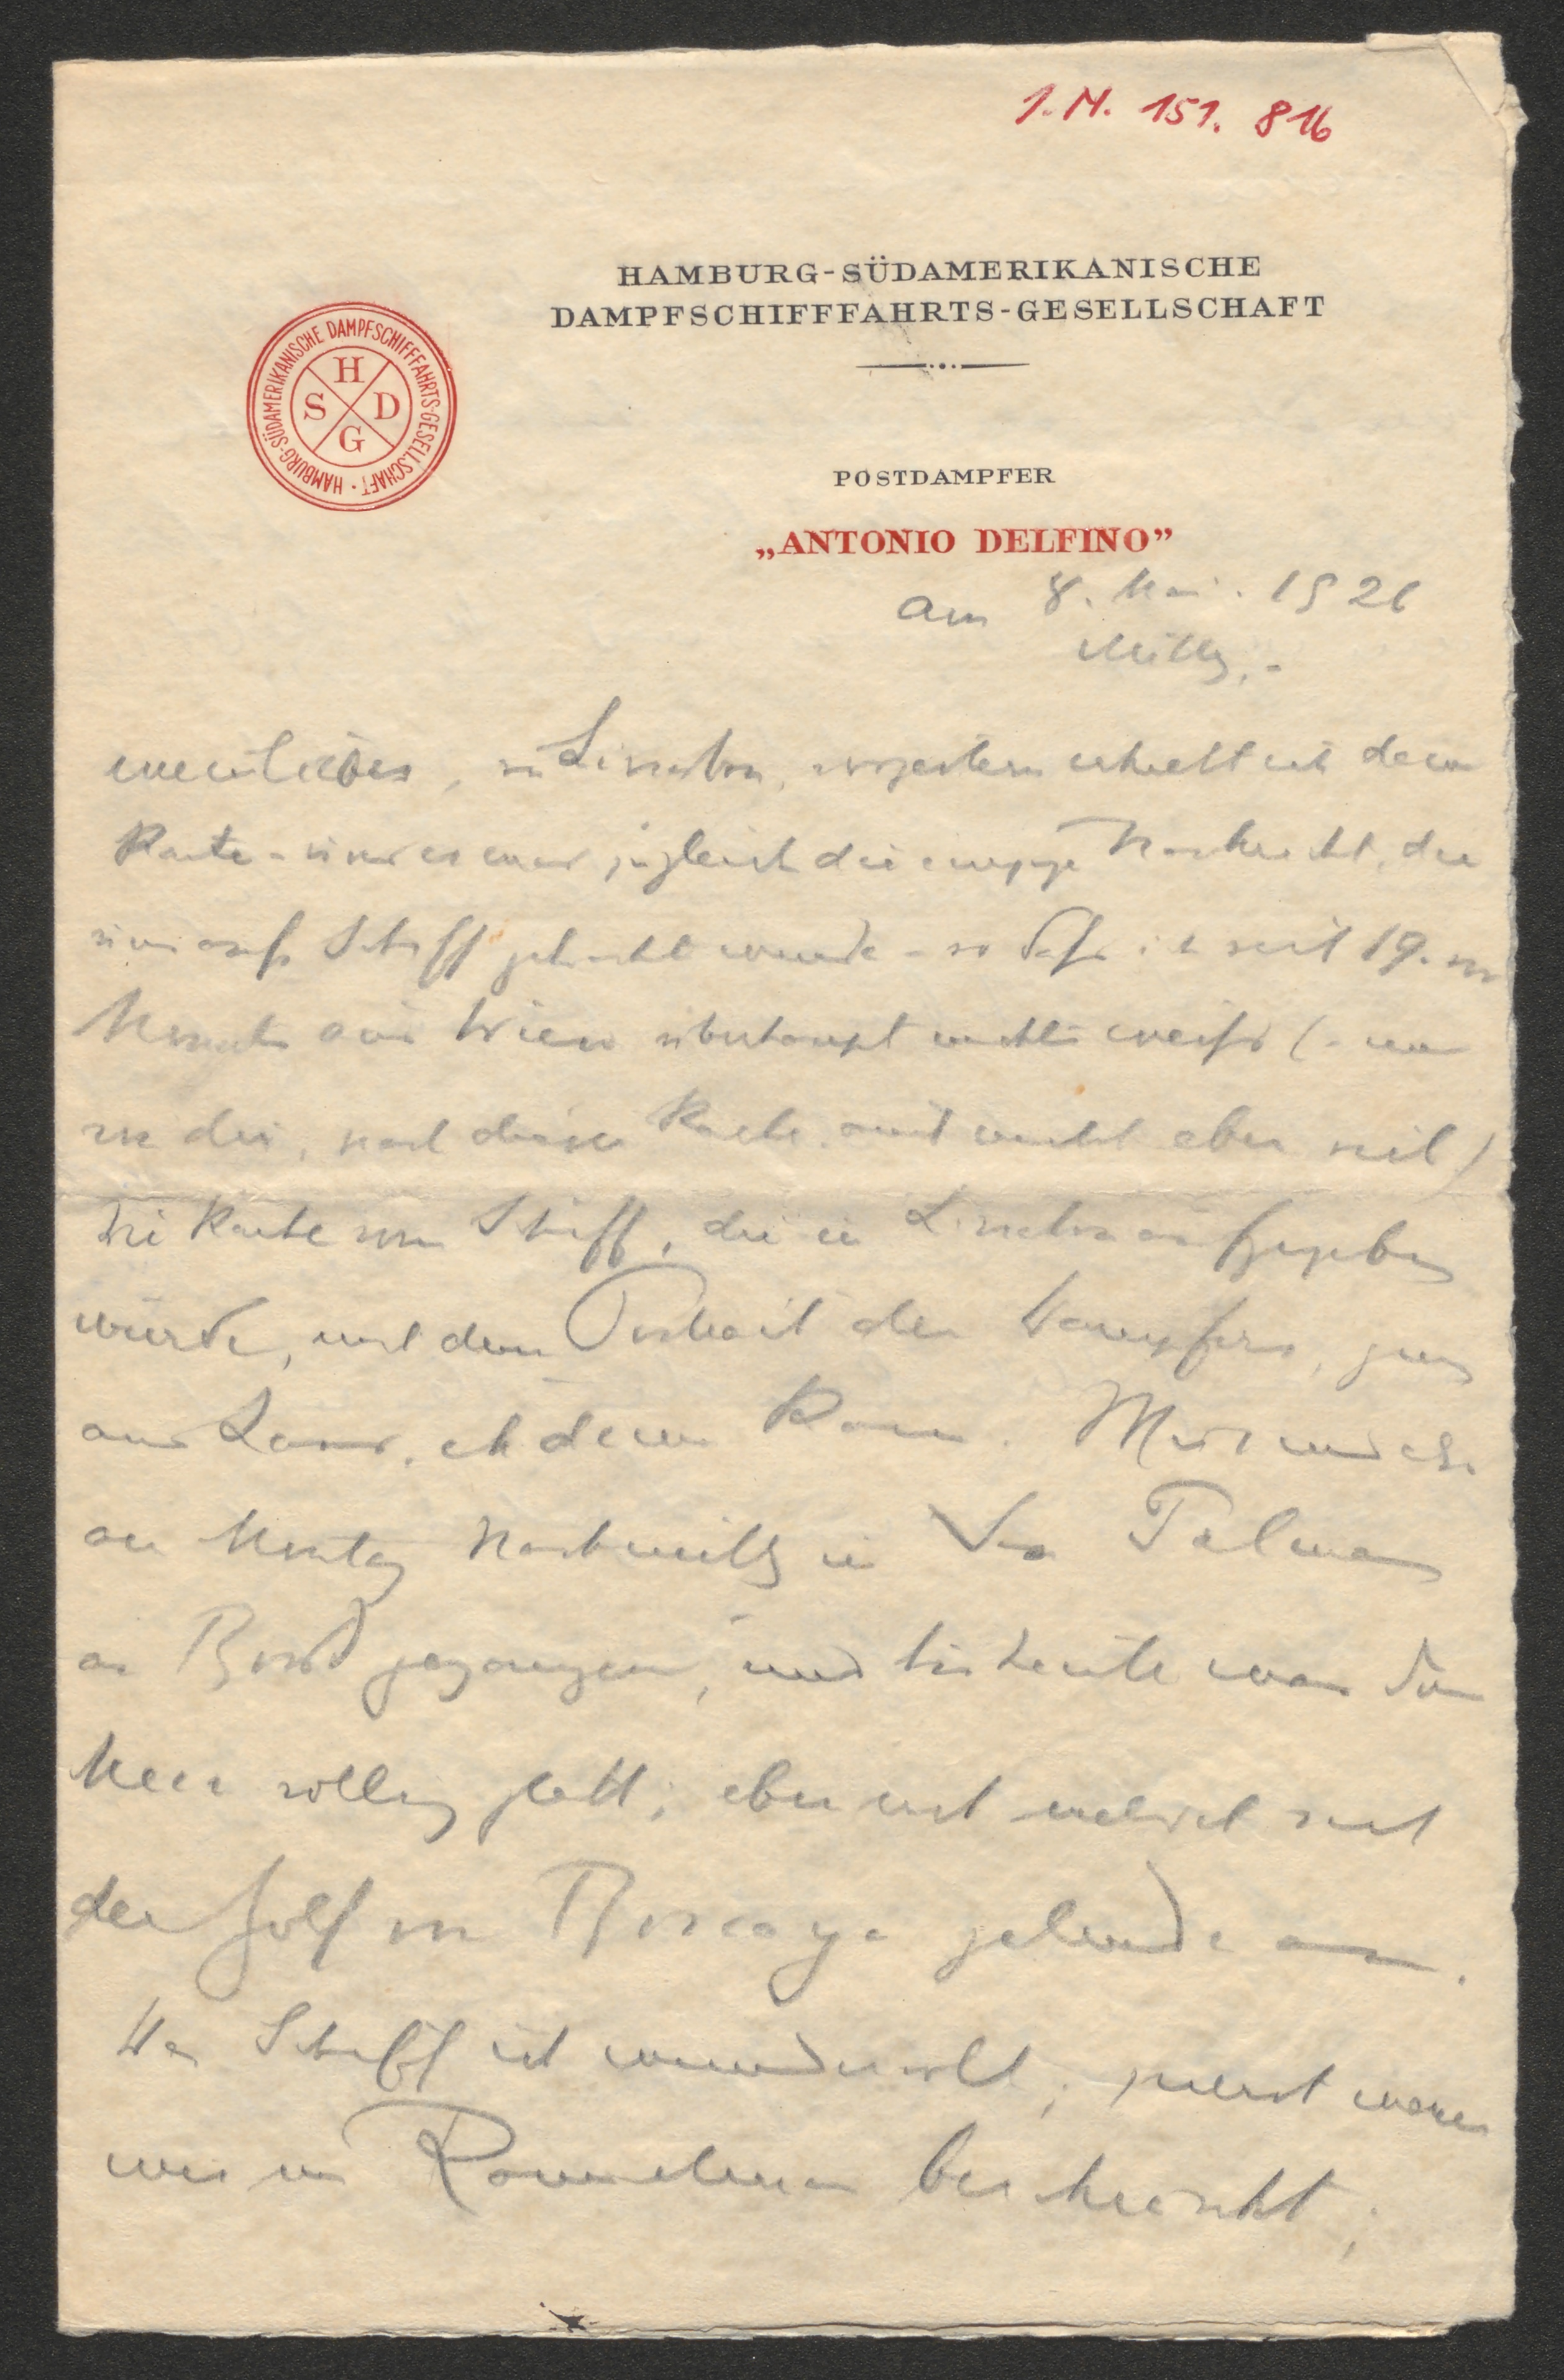 1.N. 151. 816
HAMBURG-SÜDAMERIKANISCHE
DAMPFSCHIFFFAHRTS-GESELLSCHAFT
HAMBURG-SÜDAMERIKANISCHE DAMPFSCHIFFFAHRTS-GESELLSCHAFT ·
H
S D
G
POSTDAMPFER
„ANTONIO DELFINO”
am 8. Mai. 1926
Mittg.-
mein Liebes, in Lissabon, vorgestern erhielt ich deine
Karte - es war zugleich die einzige Nachricht, die
uns aufs Schiff gebracht wurde - so dass ich seit 19. vor
Monats aus Wien überhaupt nichts weiss (- von
dir, nach dieser Karte auch nicht eben viel)
Die Karte vom Schiff, die in Lissabon aufgegeben
wurde, mit dem Portrait des Dampfers, ging
ans Land, eh deine kam. Wir sind also
am Montag Nachmittg in Las Palmas
an Bord gegangen, und bis heute war das
Meer völlig glatt; eben erst meldet sich
der Golf von Biscaya gelinde an.
Das Schiff ist wundervoll; zuerst waren
wir im Raum ein bischen beschränkt;